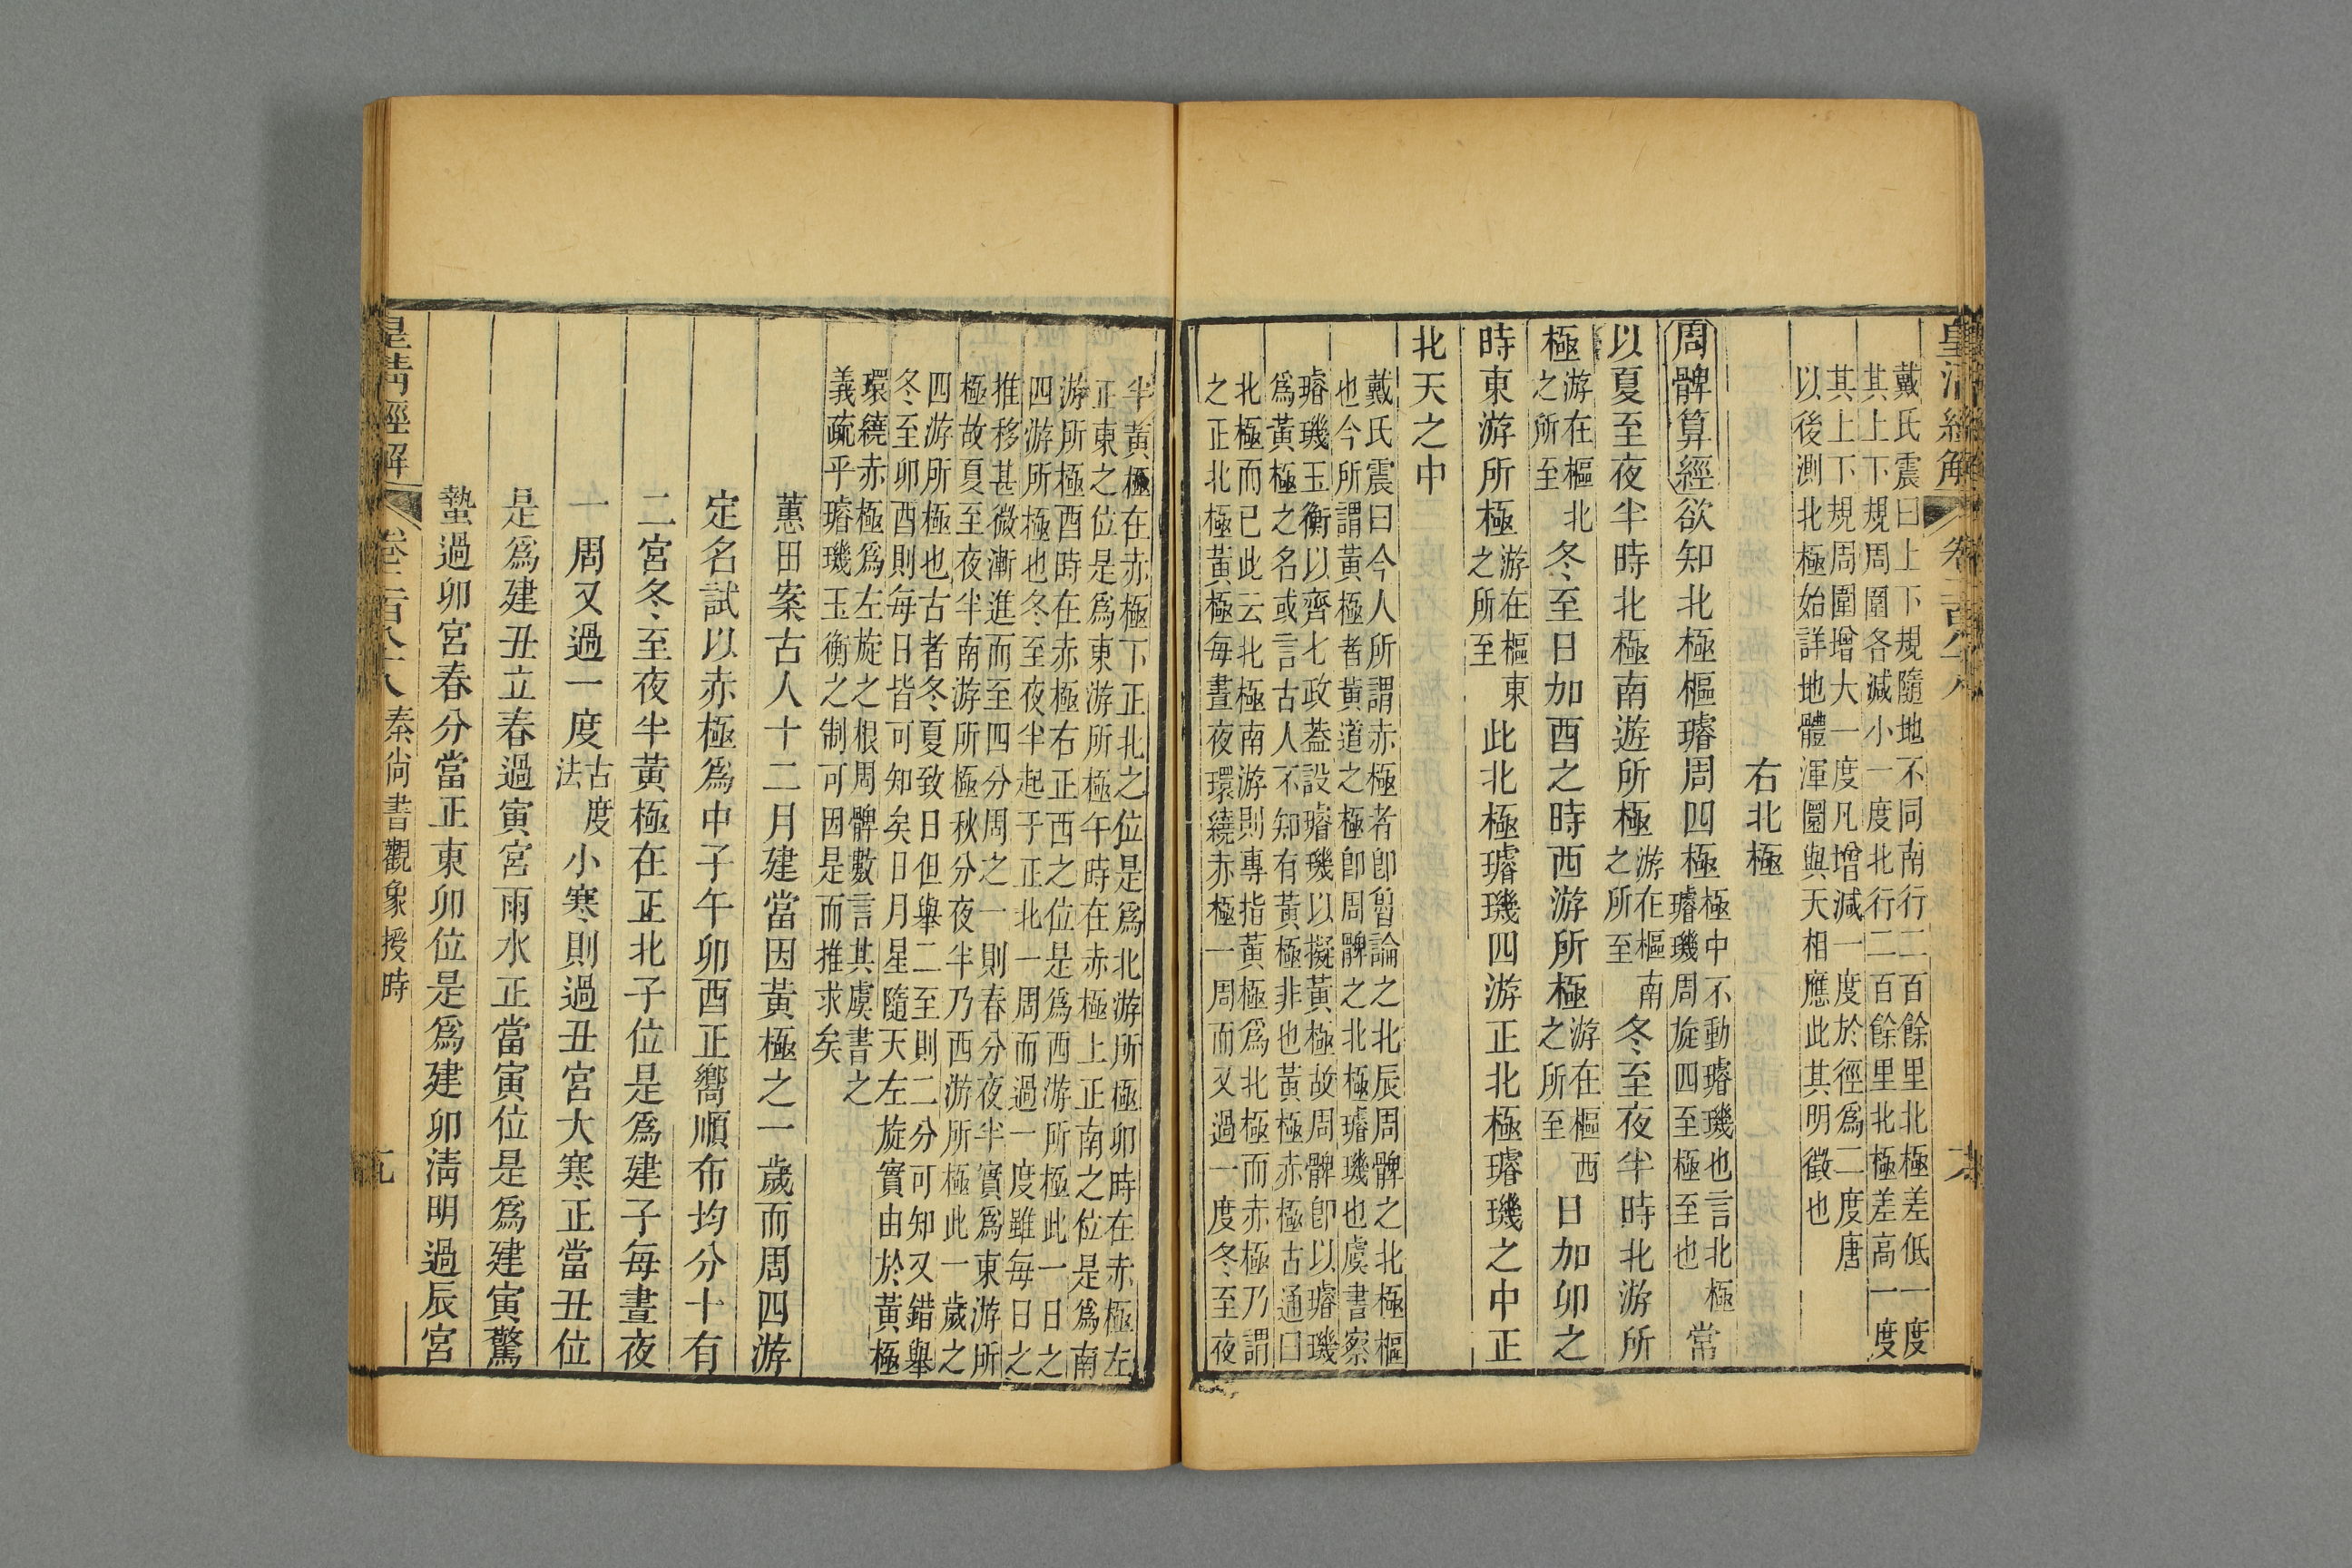 皇清經解 卷二百八十八
戴氏震曰上下規隨地不同南行二百餘里北極差低一度
其上下規周圍各減小一度北行二百餘里北極差高一度
其上下規周圍增大一度凡增減一度於徑爲二度唐
以後測北極始詳地體渾圜與天相應此其明徵也
右北極
周髀算經欲知北極樞璿周四極極中不動璿璣也言北極璿璣周旋四至極至也常
以夏至夜半時北極南遊所極游在樞南之所至冬至夜半時北游所
極游在樞北之所至冬至日加酉之時西游所極游在樞西之所至日加卯之
時東游所極游在樞東之所至此北極璿璣四游正北極璿璣之中正
北天之中
戴氏震曰今人所謂赤極者卽魯論之北辰周髀之北極樞
也今所謂黃極者黃道之極卽周髀之北極璿璣也虞書察
璿璣玉衡以齊七政葢設璿璣以擬黃極故周髀卽以璿璣
爲黃極之名或言古人不知有黃極非也黃極赤極古通曰
北極而已此云北極南游則專指黃極爲北極而赤極乃謂
之正北極黃極每晝夜環繞赤極一周而又過一度冬至夜
半黃極在赤極下正北之位是爲北游所極卯時在赤極左
正東之位是爲東游所極午時在赤極上正南之位是爲南
游所極酉時在赤極右正西之位是爲西游所極此一日之
四游所極也冬至夜半起于正北一周而過一度雖每日之
推移甚微漸進而至四分周之一則春分夜半實爲東游所
極故夏至夜半南游所極秋分夜半乃西游所極此一歲之
四游所極也古者冬夏致日但舉二至則二分可知又錯舉
冬至卯酉則每日皆可知矣日月星隨天左旋實由於黃極
環繞赤極爲左旋之根周髀數言其虞書之
義疏乎璿璣玉衡之制可因是而推求矣
蕙田案古人十二月建當因黃極之一歲而周四游
定名試以赤極爲中子午卯酉正嚮順布均分十有
二宮冬至夜半黃極在正北子位是爲建子每晝夜
一周又過一度古度法小寒則過丑宮大寒正當丑位
是爲建丑立春過寅宮雨水正當寅位是爲建寅驚
蟄過卯宮春分當正東卯位是爲建卯清明過辰宮
皇清經解 卷二百八十八 秦尚書觀象授時